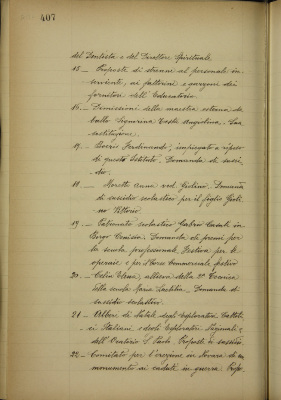 407
del Dentista e del Direttore Spirituale.
15 - Proposte di strenne al personale in-
serviente, ai fattorini e garzoni dei
fornitori dell' Educatorio
16. - Dimissioni della maestra esterna da
ballo Signorina Costa Angiolina. Sua
sostituzione.
17. Ferdinando, impiegato a riposo
di questo Istituto. Domanda di sussi-
dio.
18. - Moretti Anna ved. Giolino. Domanda
di sussidio scolastico per il figlio Gioli-
no Vittorio
19 - Patronato scolastico Gabrio Casati in
Borgo Domanda di premi per
la scuola professionale festiva per le
operaie e per il Corso Commerciale festivo
20. - Elena, allieva della 3ª Tecnica
della scuola Maria Laetitia. Domanda di
sussidio scolastico.
21 - Alberi di Natale degli Esploratori Cattoli-
ci Italiani e degli Esploratori Nazionali,
dell' Oratorio S. Paolo. Proposte di sussidio
22. - Comitato per l'erezione in Novara di un
monumento ai caduti in guerra. Propo.